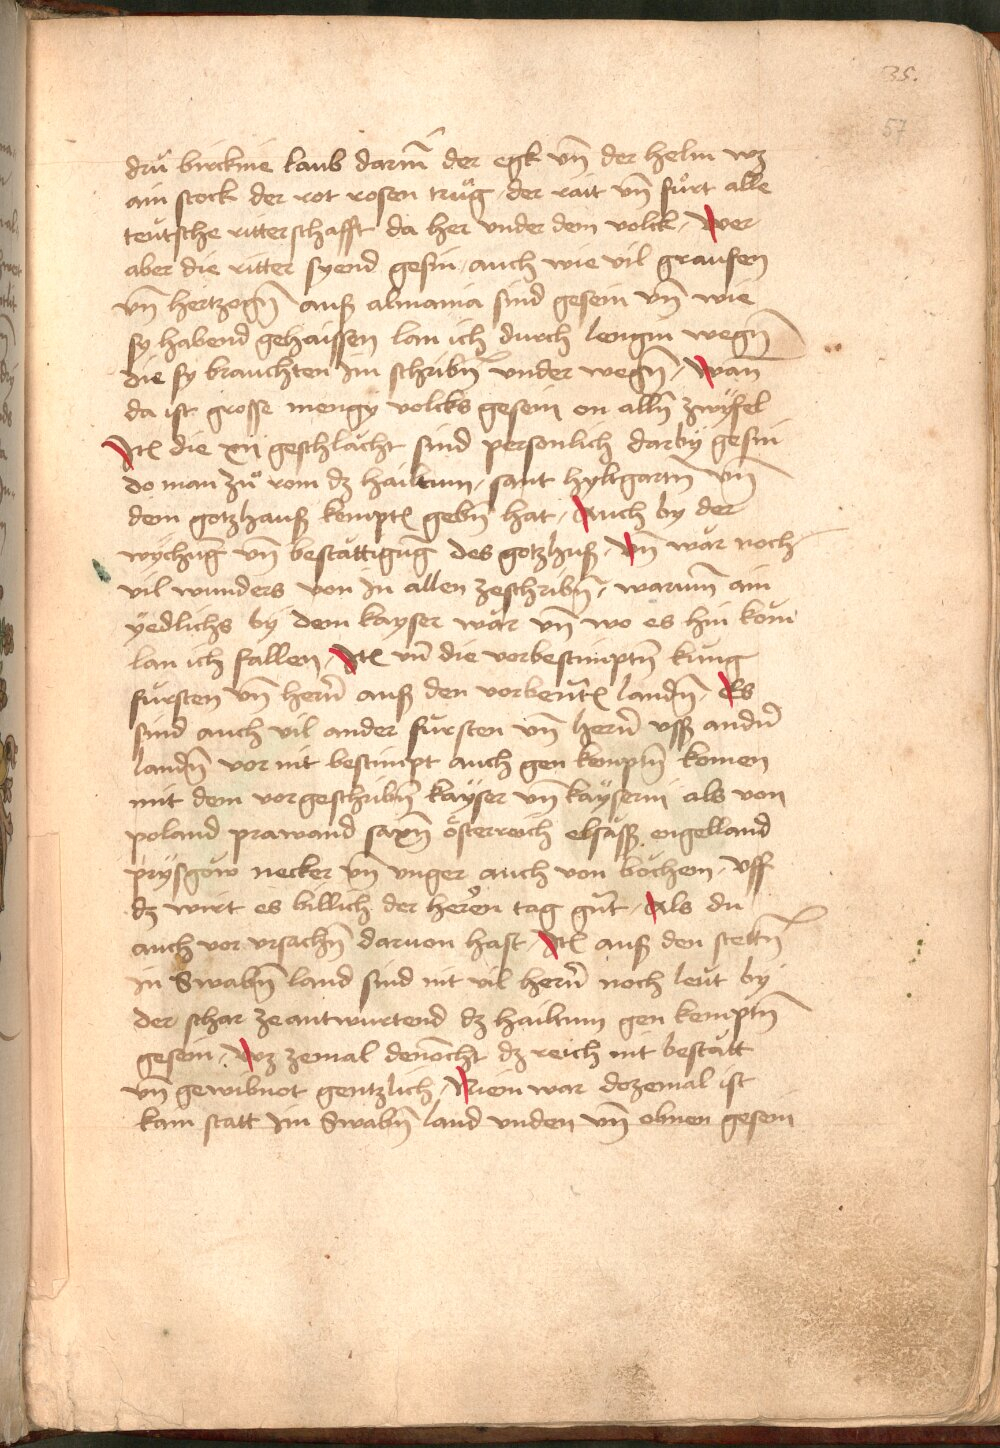 35.
57
drü birckine laub darin̄ der egk vn̄ der helm wz
ain stock der rot rosen trůg der rait vn̄ fůrt alle
teütsche ritterschafft da her vnder dem volck, Wer
aber die ritter syend gesin auch wie vil graufen
vn̄ hertzogn̄ auß almania sind gesein vn̄ wie
sy habend gehaissen lan ich durch lengin wegn̄
die sy brauchten im schribn̄ vnder wegn̄, Wan
da ist grosse mengy volcks gesein on alln̄ zwÿfel
Itē die xii geschlächt sind personlich darbÿ gesin
do man zů rom dz hailtum, sant hyltgartn̄ vn̄
dem gotzhauß kemptē gebn̄ hat, Auch by der
wÿchunḡ vn̄ bestättigunḡ des gotzhuß, Vn̄ wär noch
vil wunders von in allen zeschribn̄, warumm ain
yedlichs bÿ dem kayser wär vn̄ wo es hin kom̄
lan ich fallen, Itē vn̄ die vorbestimptn̄ küng
fürsten vn̄ herrn̄ auß den vorbenūtē landn̄, Es
sind auch vil ander fürsten vn̄ herrn̄ vsß andn̄
landn̄ vor nit bestimpt auch gen kemptn̄ komen
mit dem vorgeschribn̄ kaÿser vn̄ kaÿserin als von
poland prawand saxn̄ österreich elsäsß engelland
prÿsgöw necker vn̄ vnger auch von böchem, Vff
dz wirt es billich der heren tag gnt, Als du
auch vor vrsachn̄ daruon hast, Itē auß den stettn̄
in Swabn̄ land sind nit vil herrn̄ noch leüt by
der schar ze antwurtend dz hailtum gen kemptn̄
gesein, Wz zemal dennocht dz reich nit bestätt
vn̄ gewibnot gentzlich, Niem war dozemal ist
kain statt im Swabn̄ land vnden vn̄ obnen gesein